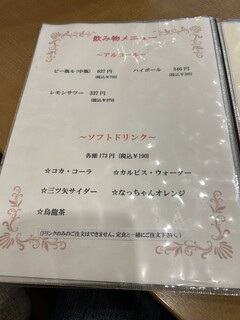 飲み物メニュー
～アルコール～
ビール(中瓶) 637円 ハイボール 346円
(税込￥700) (税込￥380)
レモンサワー 337円
(税込￥370)
～ソフトドリンク～
各種173円(税込￥190)
☆コカ・コーラ ☆カルピス・ウォーター
☆三ツ矢サイダー ☆なっちゃんオレンジ
☆烏龍茶
(ドリンクのみのご注文はできません。定食と一緒にご注文下さい。)